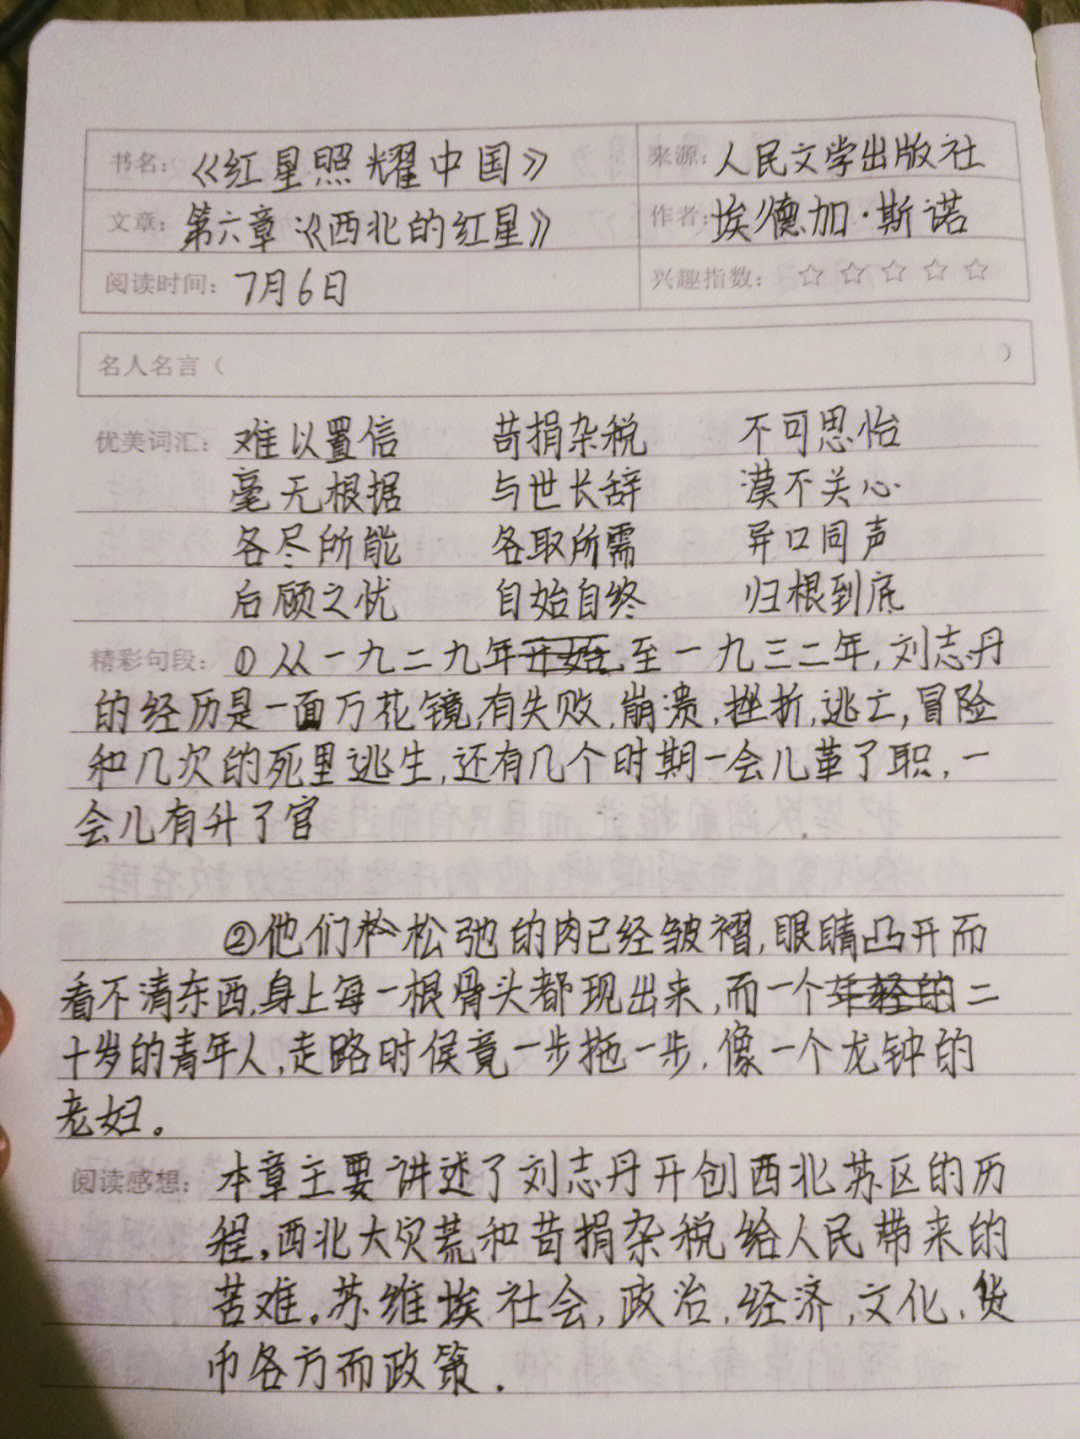 书名：《红星照耀中国》 来源：人民文学出版社
文章：第六章：《西北的红星》 作者：埃德加·斯诺
阅读时间：7月6日 兴趣指数：☆☆☆☆☆
名人名言（ ）
优美词汇：难以置信 苛捐杂税 不可思怡
毫无根据 与世长辞 漠不关心
各尽所能 各取所需 异口同声
后顾之忧 自始自终 归根到底
精彩句段：①从一九二九年开始,至一九三二年,刘志丹
的经历是一面万花镜,有失败,崩溃,挫折,逃亡,冒险
和几次的死里逃生,还有几个时期一会儿革了职,一
会儿有升了官
②他们松松弛的肉已经皱褶,眼睛凸开而
看不清东西,身上每一根骨头都现出来,而一个年轻的二
十岁的青年人,走路时候竟一步拖一步,像一个龙钟的
老妇。
阅读感想：本章主要讲述了刘志丹开创西北苏区的历
程。西北大灾荒和苛捐杂税给人民带来的
苦难。苏维埃社会,政治,经济,文化,货
币各方而政策.